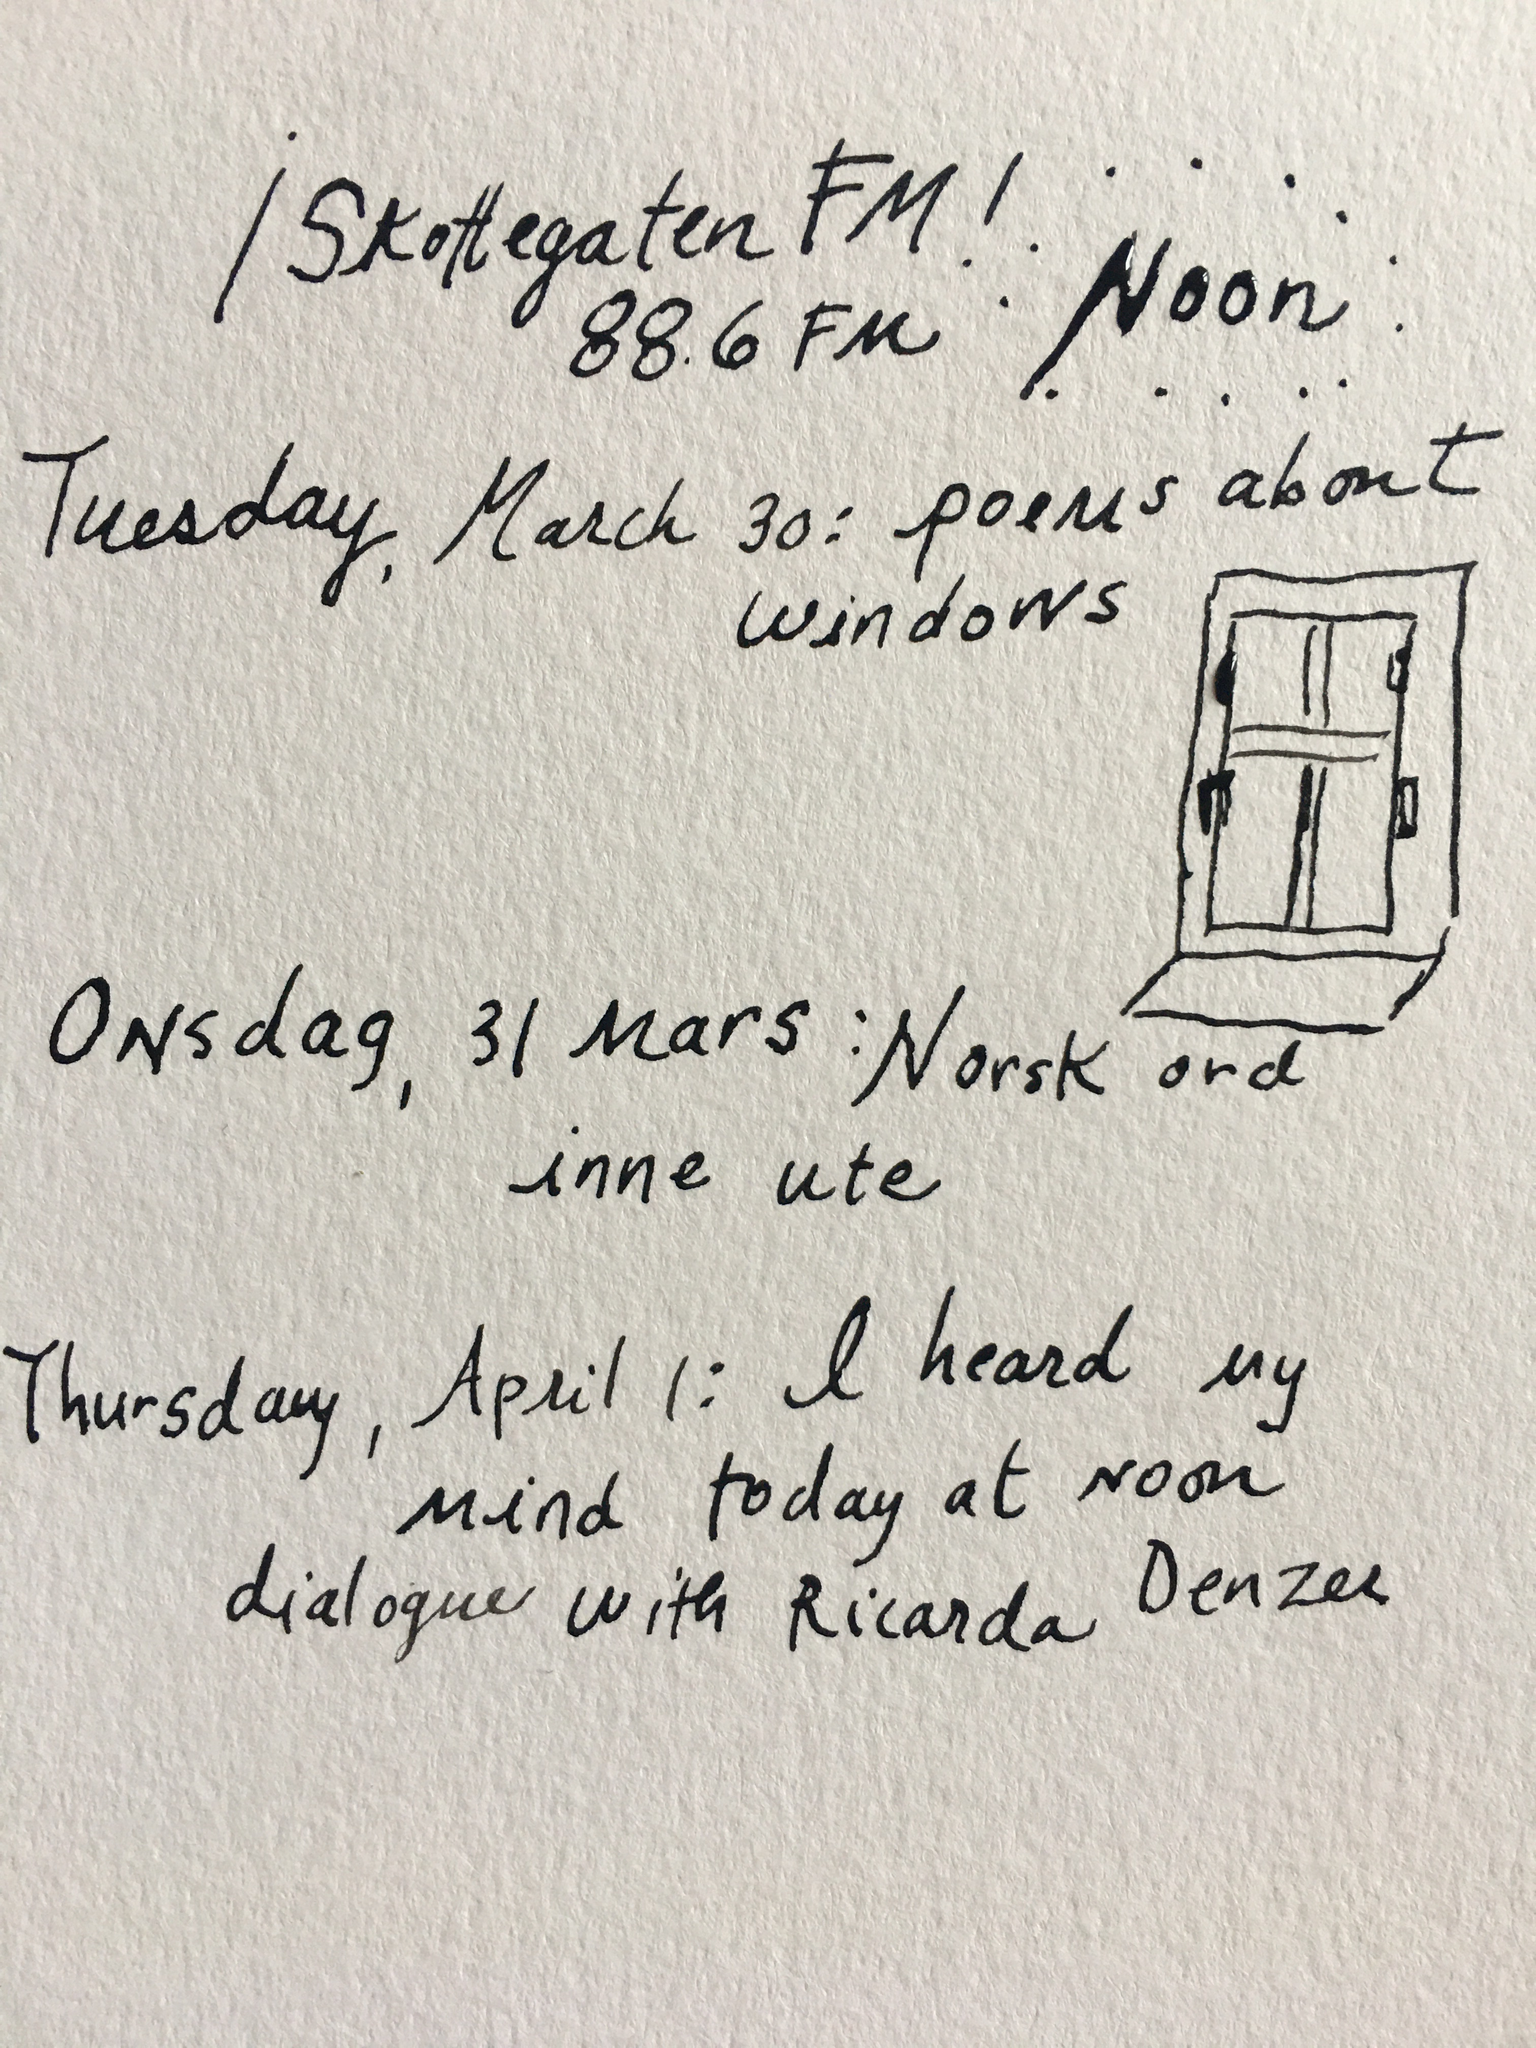 ¡Skottegaten FM!
88.6 FM Noon
Tuesday, March 30: poems about
windows
Onsdag, 31 Mars: Norsk ord
inne ute
Thursday, April 1: I heard my
mind today at noon
dialogue with Ricarda Denzer